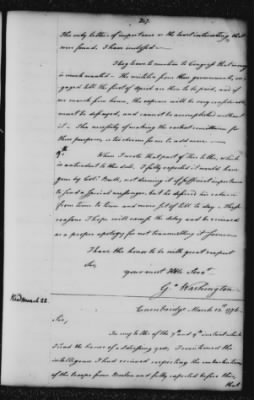 267.
The only letters of importance or the least interesting, that
were found, I have inclosed.
I beg leave to mention to Congress that money
is much wanted. The militia from these governments, en-
gaged till the first of April are then to be paid, and if
we march from hence, the expence will be very considerable
must be defrayed, and cannot be accomplished without
it. The necessity of making the earliest remittance for
these purposes, is too obvious for me to add more.
9th. When I wrote that part of this letter, which
is antecedent to this date, I fully expected it would have
gone by Colo. Bull, not deeming it of sufficient importance
to send a special messenger, but he deferred his return
from time to time and never set off till to day. These
reasons I hope will excuse the delay and be received
as a proper apology for not transmitting it sooner.
I have the honor to be with great respect
Sir,
your most Hble Servt.
Go. Washington
Cambridge March 13th 1776.
Sir,
In my letter of the 7th and 9th instant which
I had the honor of addressing you, I mentioned the
intelligence I had received respecting the embarkation
of the troops from Boston and fully expected before this,
that